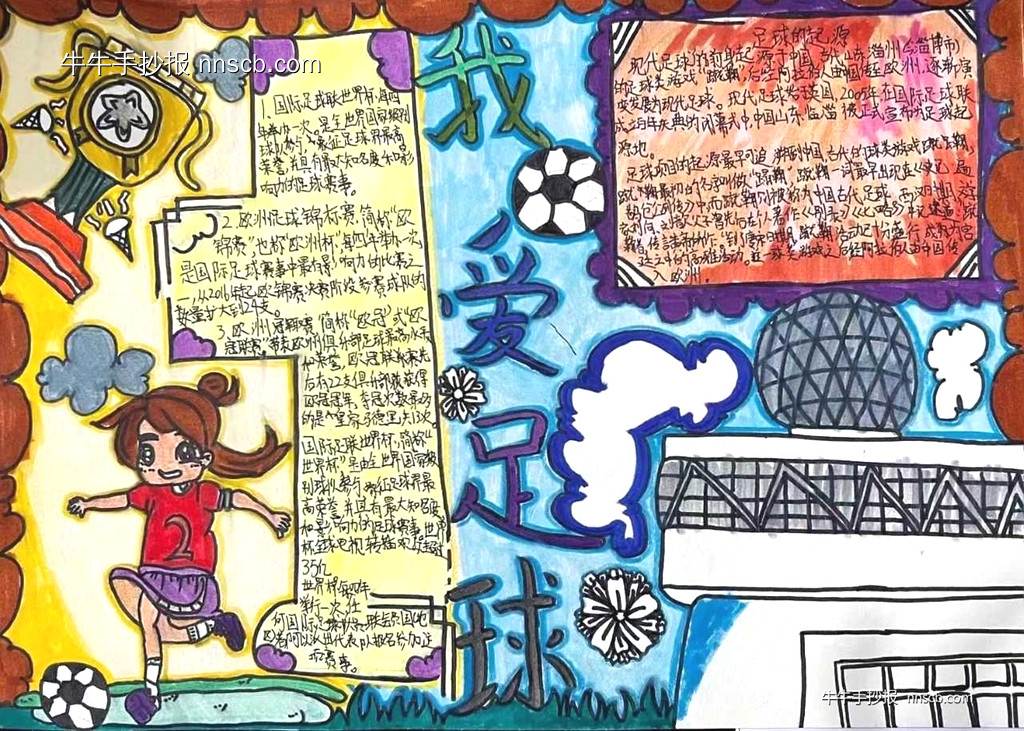 牛牛手抄报 nnscb.com
我爱足球
1. 国际足球联世界杯,每四
年举办一次。是全世界国家级别
球队参与,象征足球界最高
荣誉,并具有最大知名度和影
响力的足球赛事。
2. 欧洲足球锦标赛,简称“欧
锦赛”,也称“欧洲杯”每四年举办一次,
是国际足球赛事中最有影响力的比赛之
一,从2016年起,欧锦赛决赛阶段参赛球队的
数量扩大到24支。
3. 欧洲冠军联赛,简称“欧冠”或“欧
冠联赛”,代表欧洲俱乐部足球最高水平
和荣誉,欧冠联赛先
后有22支俱乐部获得
欧冠冠军,夺冠次数最多
的是“皇家马德里,共13次。
国际足联世界杯,简称“
世界杯”是由全世界国家级
别球队参与,象征足球界最
高荣誉,并具有最大知名度
和影响力的足球赛事,世界
杯全球电视转播观众超过
35亿
世界杯每四年
举行一次,任
何国际足球联会员国(地
区)都可以派出代表队报名参加这
项赛事。
足球的起源
现代足球的前身起源于中国古代山东淄州(今淄博市)
的球类游戏“蹴鞠”,后经阿拉伯人由中国传至欧洲,逐渐演
变发展为现代足球。现代足球发源英国,2005年在国际足球联
成立百年庆典的闭幕式中,中国山东临淄被正式宣布为足球起
源地。
足球项目的起源最早可追溯到中国古代的球类游戏“蹴鞠”,
牛牛手抄报 nnscb.com